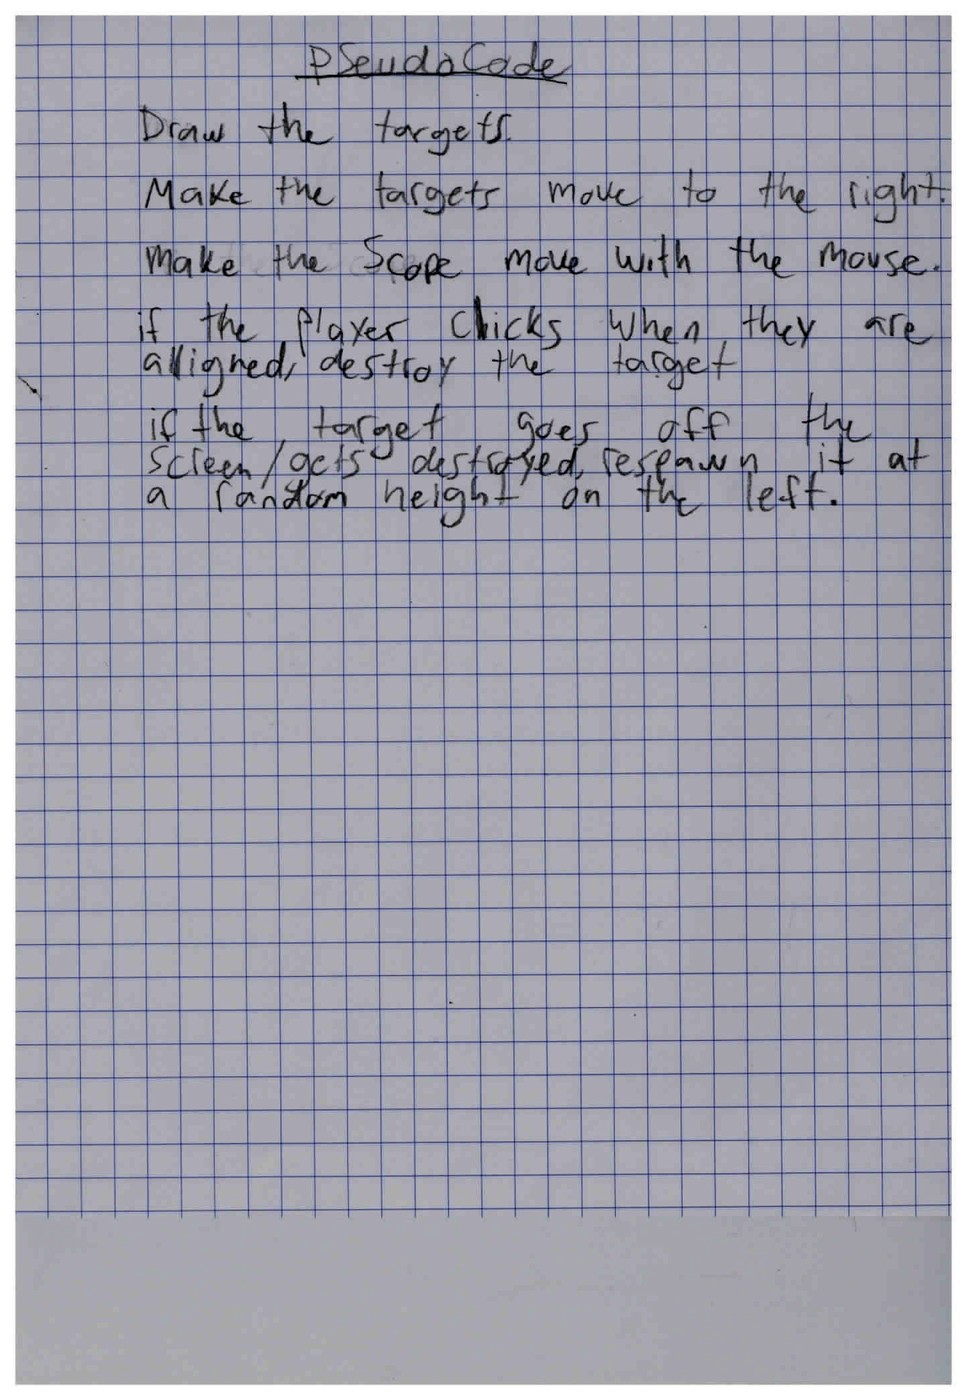 PSeudoCode
Draw the targets.
Make the targets move to the right.
Make the Scope move with the mouse.
if the player clicks when they are
alligned, destroy the target
if the target goes off the
screen/gets destroyed, respawn it at
a random height on the left.